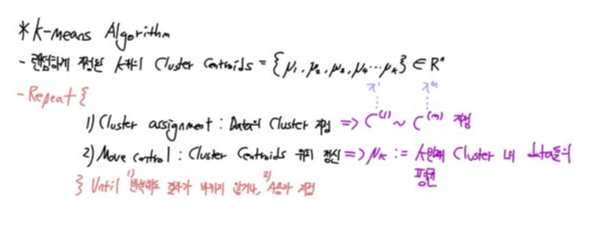 * K-means Algorithm
- 랜덤하게 지정된 K개의 Cluster Centroids = {μ₁, μ₂, μ₃, μ₄ ... μₖ} ∈ Rⁿ
- Repeat {
x¹ xᵐ
1) Cluster assignment : Data의 Cluster 지정 => C⁽¹⁾ ~ C⁽ᵐ⁾ 지정
2) Move control : Cluster Centroids 위치 갱신 => μₖ := k번째 Cluster 내 data들의
평균
} Until 1) 반복해도 결과가 바뀌지 않거나, 2) 사용자 지정